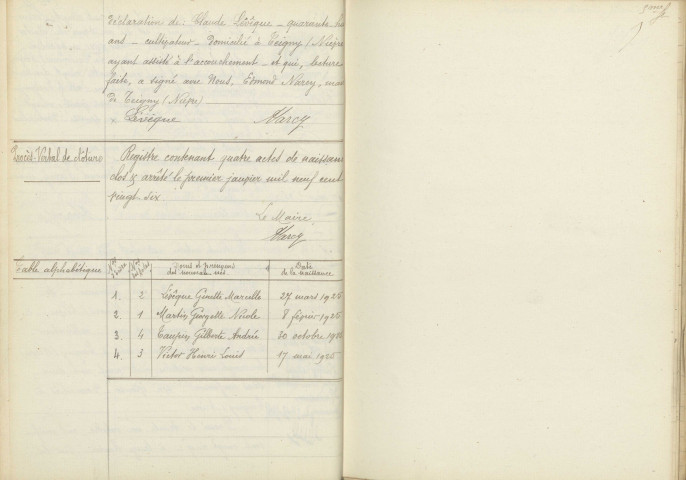 Déclaration de : Claude Lévêque - quarante
ans - cultivateur - domicilié à Teigny (Nièvre
ayant assisté à l'accouchement - et qui, lecture
faite, a signé avec Nous, Edmond Narcy,
de Teigny (Nièvre)
Lévêque Narcy
Procès-Verbal de Clôture
Registre contenant quatre actes de naissan
clos & arrêté le premier janvier mil neuf cent
vingt six
Le Maire,
Narcy
Table alphabétique
Noms et prénoms Date
des nouveau-nés. de la naissance
1. 2 Lévêque Ginette Marcelle 27 mars 1925
2. 1 Martin Georgette Nicole 8 février 1925
3. 4 Taupin Gilberte Andrée 30 octobre 1925
4. 3 Victor Henri Louis 17 mai 1925